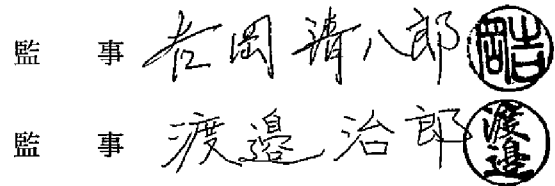 監 事 吉岡清八郎 吉岡
監 事 渡邊治郎 渡邊